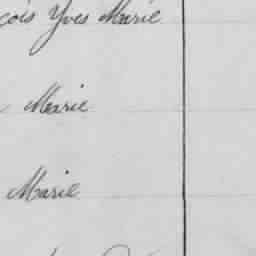 çois Yves Marie
Marie
Marie